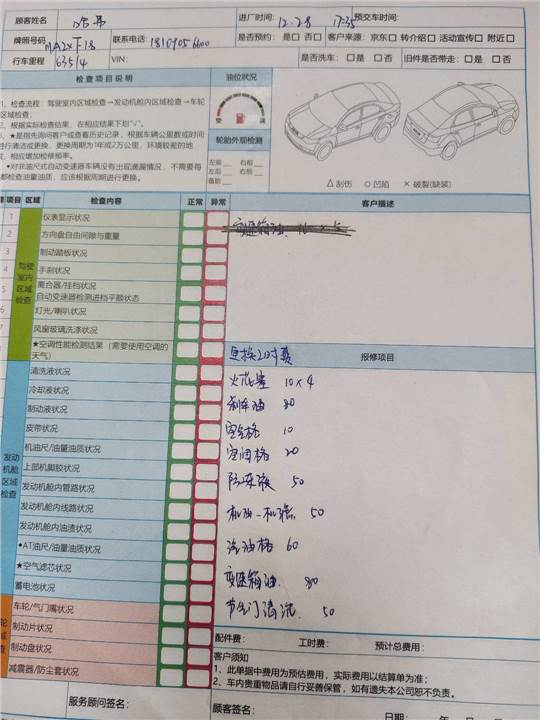 顾客姓名
进厂时间： 12.28 17:35 预交车时间：
牌照号码
联系电话：
是否预约：□是 否□ 客户来源：京东□ 转介绍□ 活动宣传□ 附近□
行车里程 63514
VIN：
是否洗车：□是 □否 旧件是否带走：□是 □否
检查项目说明
油位状况
1、检查流程：驾驶室内区域检查→发动机舱内区域检查→车轮
区域检查；
2、根据实际检查结果，在相应结果下划"√"。
3、★是指先询问客户或查看历史记录，根据车辆公里数或时间
进行清洁或更换，更换周期为1年或2万公里，环境较差的地
区，相应增加检修频率。
*对非油尺式自动变速器车辆没有出现滴漏情况，不需要每
都检查油量油质，应该根据周期进行更换。
轮胎外观检测
左前 右前
左后 右后
备胎
△刮伤 ○凹陷 ×破裂(缺装)
项目 区域 检查内容 正常 异常 客户描述
驾驶室内区域检查
1 仪表显示状况
2 方向盘自由间隙与重量
3 制动踏板状况
4 手刹状况
5 离合器/挂档状况
自动变速器检测进档平顺状态
6 灯光/喇叭状况
7 风窗玻璃洗涤状况
★空调性能检测结果（需要使用空调的
天气）
报修项目
发动机舱区域检查
清洗液状况
冷却液状况
制动液状况
皮带状况
机油尺/油量油质状况
上部机脚胶状况
发动机舱内管路状况
发动机舱内线路状况
发动机舱内油渍状况
*AT油尺/油量油质状况
★空气滤芯状况
蓄电池状况
车轮/气门嘴状况
制动片状况
制动盘状况
减震器/防尘套状况
更换工时费
火花塞 10×4
刹车油 80
空气格 10
空调格 20
防冻液 50
机油-机滤 50
汽油格 60
变速箱油 80
节气门清洗 50
配件费： 工时费： 预计总费用：
客户须知
1、此单据中费用为预估费用，实际费用以结算单为准；
2、车内贵重物品请自行妥善保管，如有遗失本公司恕不负责。
服务顾问签名：
顾客签名：
日期： 年 月